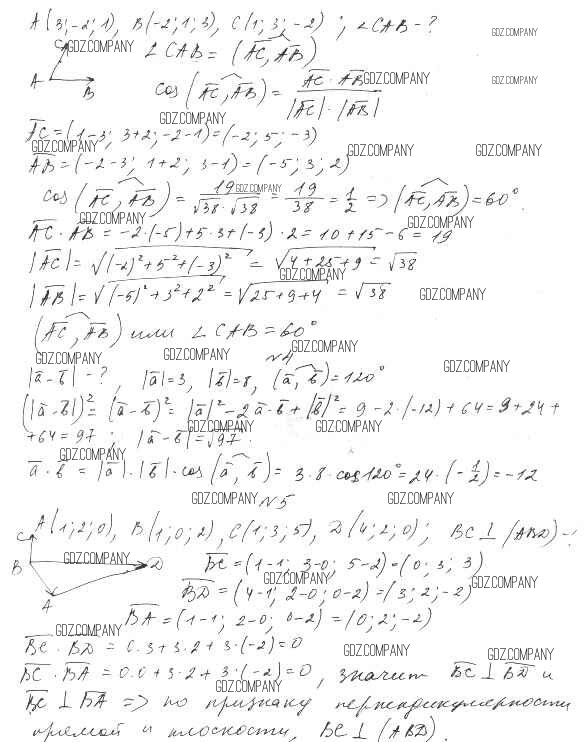 A(3; -2; 1), B(-2; 1; 3), C(1; 3; -2); ∠CAB - ?
GDZ.COMPANY
C
GDZ.COMPANY
∠CAB = (AC, AB)
A B
cos(AC, AB) = AC · AB / |AC| · |AB|
GDZ.COMPANY
GDZ.COMPANY
GDZ.COMPANY
AC = (1-3; 3+2; -2-1) = (-2; 5; -3)
GDZ.COMPANY
GDZ.COMPANY
GDZ.COMPANY
AB = (-2-3; 1+2; 3-1) = (-5; 3; 2)
cos(AC, AB) = 19 / √38 · √38 = 19/38 = 1/2 => (AC, AB) = 60°.
GDZ.COMPANY
GDZ.COMPANY
GDZ.COMPANY
AC · AB = -2·(-5) + 5·3 + (-3)·2 = 10 + 15 - 6 = 19
|AC| = √(-2)²+5²+(-3)² = √4+25+9 = √38
GDZ.COMPANY
|AB| = √(-5)²+3²+2² = √25+9+4 = √38
GDZ.COMPANY
(AC, AB) или ∠CAB = 60°
GDZ.COMPANY
GDZ.COMPANY
GDZ.COMPANY
N4
GDZ.COMPANY
|a-b| - ?, |a| = 3, |b| = 8, (a, b) = 120°
GDZ.COMPANY
(|a-b|)² = (a-b)² = |a|² - 2a·b + |b|² = 9 - 2·(-12) + 64 = 9+24+
GDZ.COMPANY
GDZ.COMPANY
+64 = 97; |a-b| = √97.
GDZ.COMPANY
a · b = |a|·|b|·cos(a, b) = 3·8·cos120° = 24·(-1/2) = -12
GDZ.COMPANY
GDZ.COMPANY
N5
A(1; 2; 0), B(1; 0; 2), C(1; 3; 5), D(4; 2; 0); BC ⊥ (ABD) -
C
B
GDZ.COMPANY
D
A
BC = (1-1; 3-0; 5-2) = (0; 3; 3)
GDZ.COMPANY
GDZ.COMPANY
BD = (4-1; 2-0; 0-2) = (3; 2; -2)
BA = (1-1; 2-0; 0-2) = (0; 2; -2)
GDZ.COMPANY
BC · BD = 0·3 + 3·2 + 3·(-2) = 0
GDZ.COMPANY
GDZ.COMPANY
BC · BA = 0·0 + 3·2 + 3·(-2) = 0, значит BC ⊥ BD и
GDZ.COMPANY
BC ⊥ BA => по признаку перпендикулярности
прямой и плоскости, BC ⊥ (ABD).
GDZ.COMPANY
GDZ.COMPANY